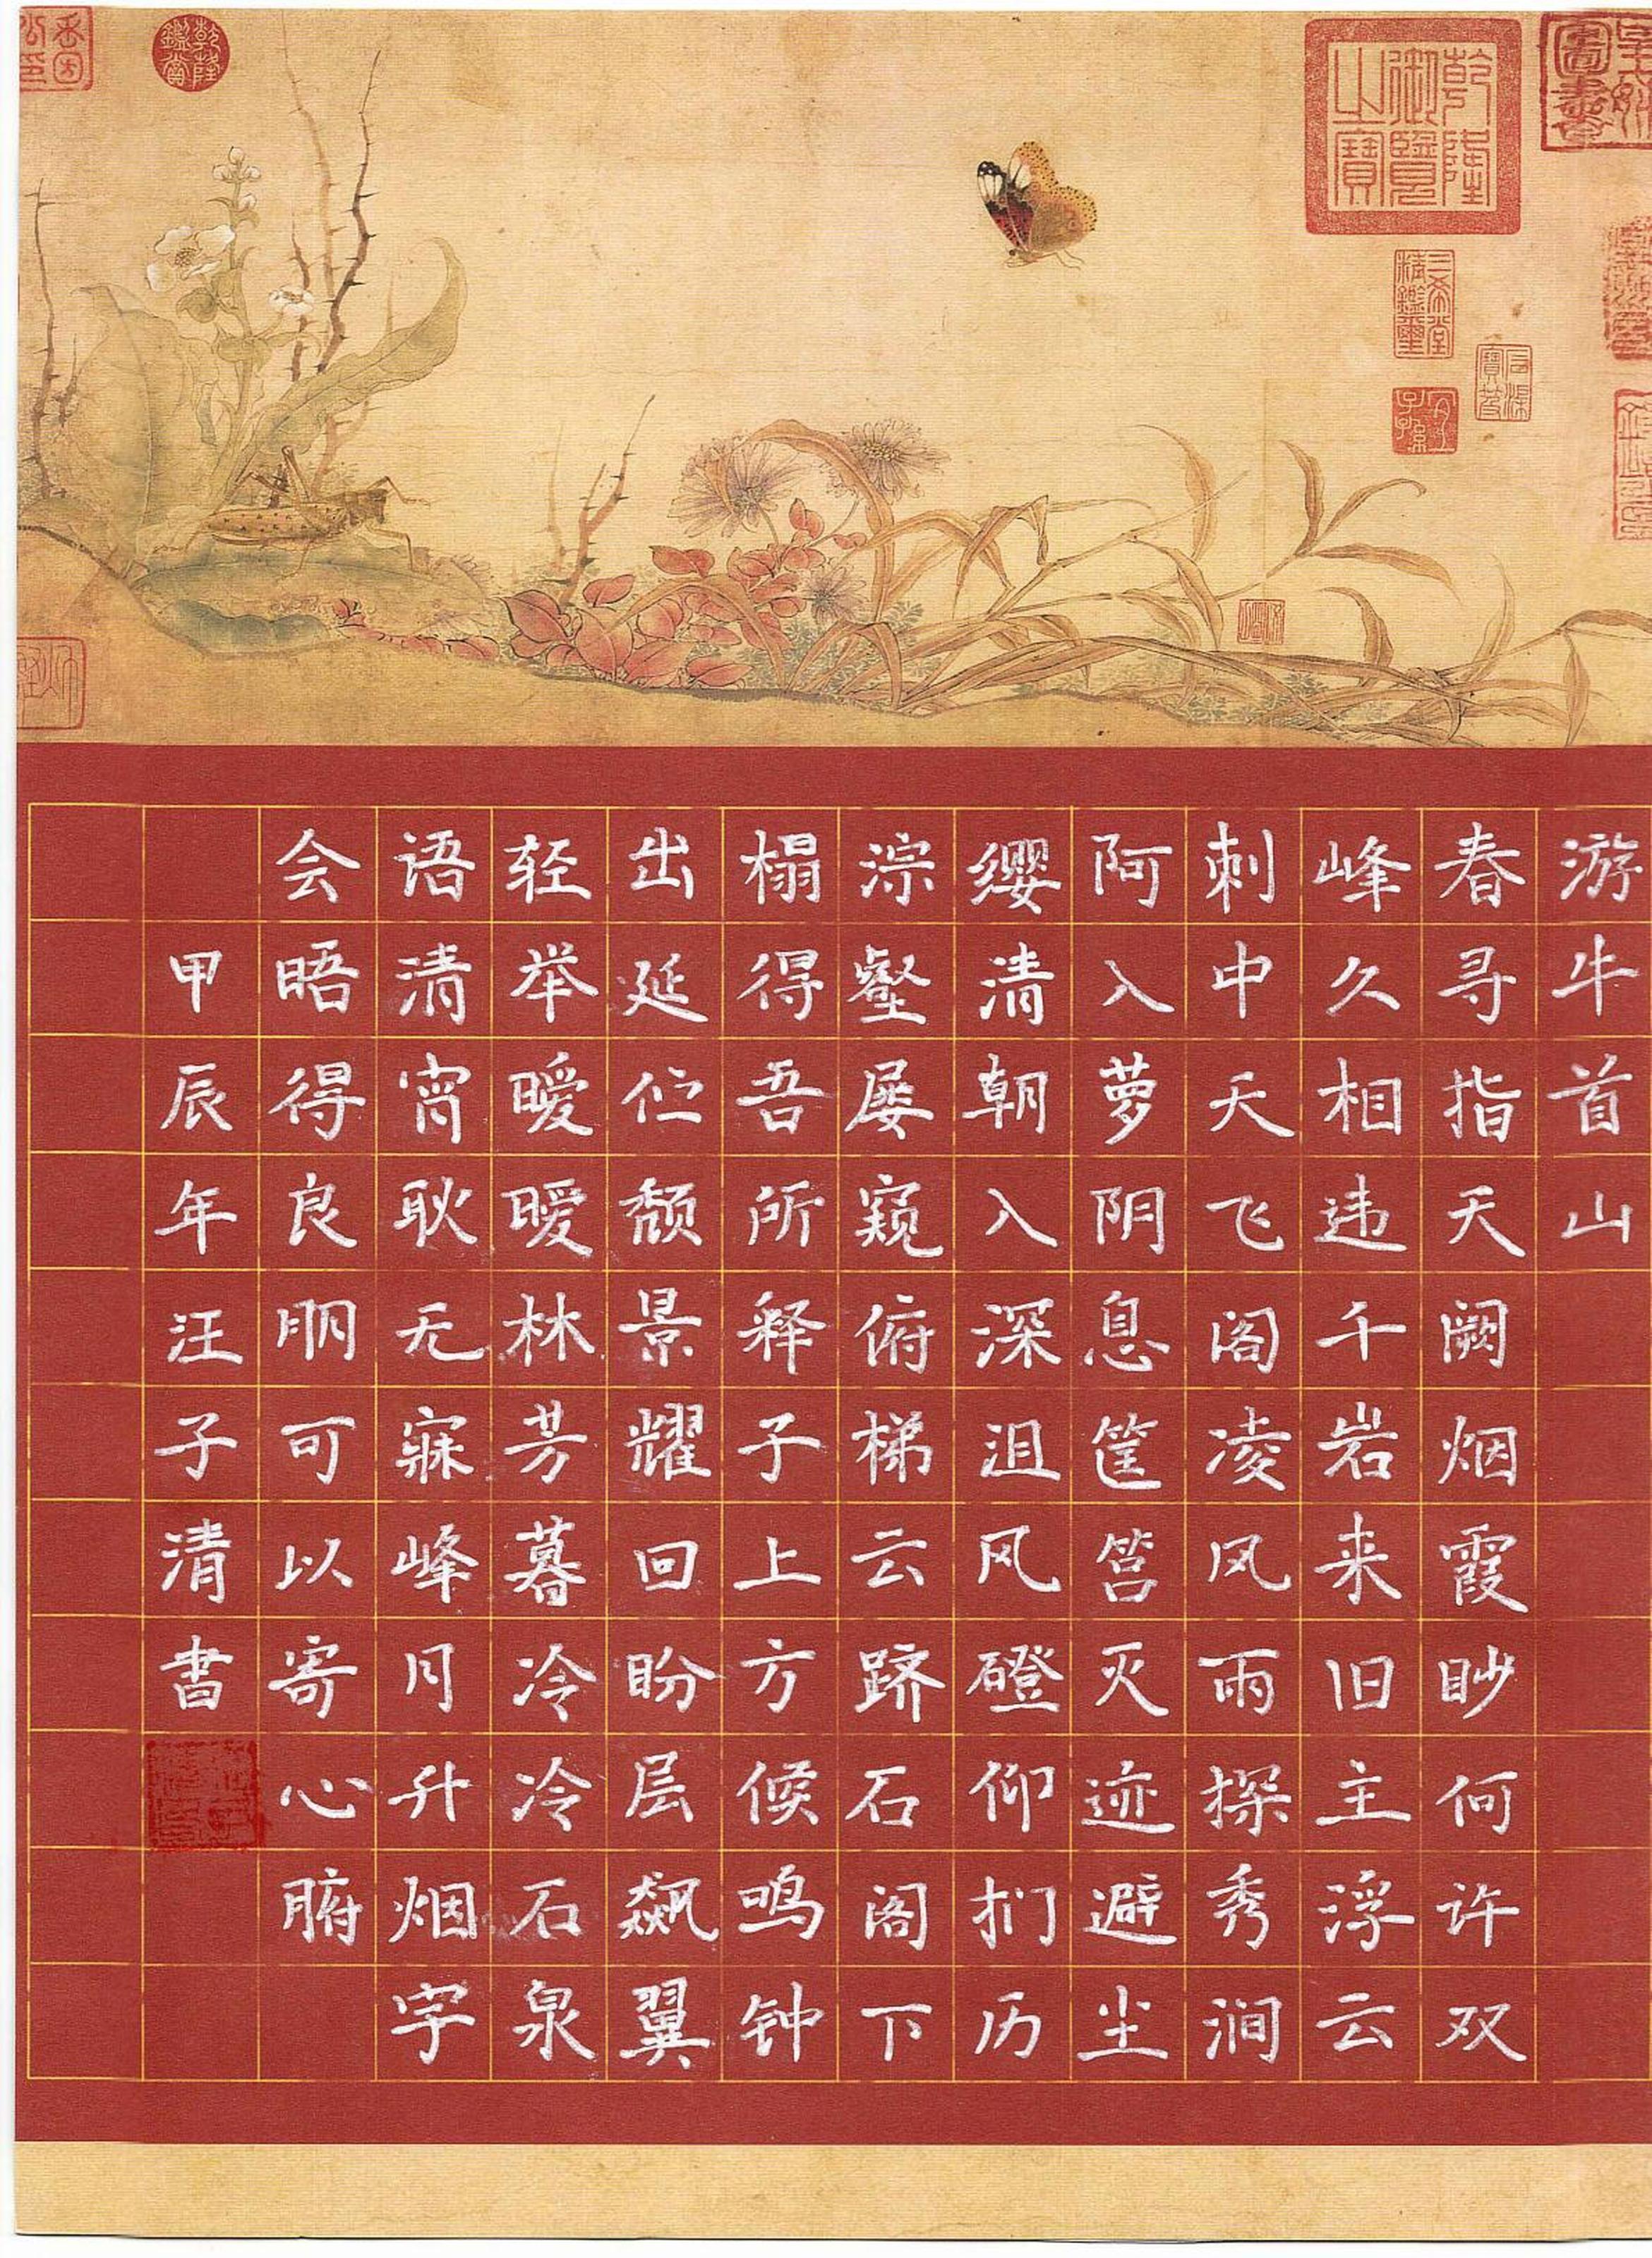 乾隆御覽之寶
乾隆鑑賞
三希堂精鑑璽
宜子孫
石渠寶笈
游牛首山
春寻指天阙烟霞眇何许双
峰久相违千岩来旧主浮云
刺中天飞阁凌风雨探秀涧
阿入萝阴息筐筥灭迹避尘
缨清朝入深沮风磴仰扪历
淙壑屡窥俯梯云跻石阁下
榻得吾所释子上方候鸣钟
出延伫颓景耀回盼层飙翼
轻举暧暧林芳暮冷冷石泉
语清宵耿无寐峰月升烟宇
会晤得良朋可以寄心腑
甲辰年汪子清书